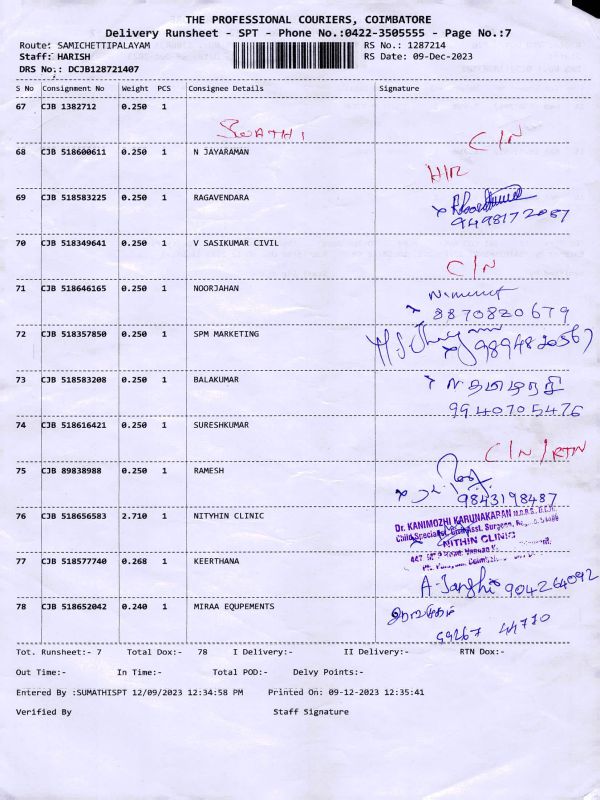 THE PROFESSIONAL COURIERS, COIMBATORE
Delivery Runsheet - SPT - Phone No.:0422-3505555 - Page No.:7
Route: SAMICHETTIPALAYAM RS No.: 1287214
Staff: HARISH RS Date: 09-Dec-2023
DRS No.: DCJB128721407
S No Consignment No Weight PCS Consignee Details Signature
67 CJB 1382712 0.250 1
SWATHI C/N
68 CJB 518600611 0.250 1 N JAYARAMAN
H/R
69 CJB 518583225 0.250 1 RAGAVENDARA
9498172087
70 CJB 518349641 0.250 1 V SASIKUMAR CIVIL
C/N
71 CJB 518646165 0.250 1 NOORJAHAN
8870820679
72 CJB 518357850 0.250 1 SPM MARKETING
9894820567
73 CJB 518583208 0.250 1 BALAKUMAR
9940705476
74 CJB 518616421 0.250 1 SURESHKUMAR
C/N/RTN
75 CJB 89838988 0.250 1 RAMESH
9843198487
76 CJB 518656583 2.710 1 NITYHIN CLINIC
Dr. KANIMOZHI KARUNAKARAN M.B.B.S., D.C.H.,
Child Specialist, Asst. Surgeon,
NITHIN CLINIC
77 CJB 518577740 0.268 1 KEERTHANA
904264092
78 CJB 518652042 0.240 1 MIRAA EQUPEMENTS
Tot. Runsheet:- 7 Total Dox:- 78 I Delivery:- II Delivery:- RTN Dox:-
Out Time:- In Time:- Total POD:- Delvy Points:-
Entered By :SUMATHISPT 12/09/2023 12:34:58 PM Printed On: 09-12-2023 12:35:41
Verified By Staff Signature